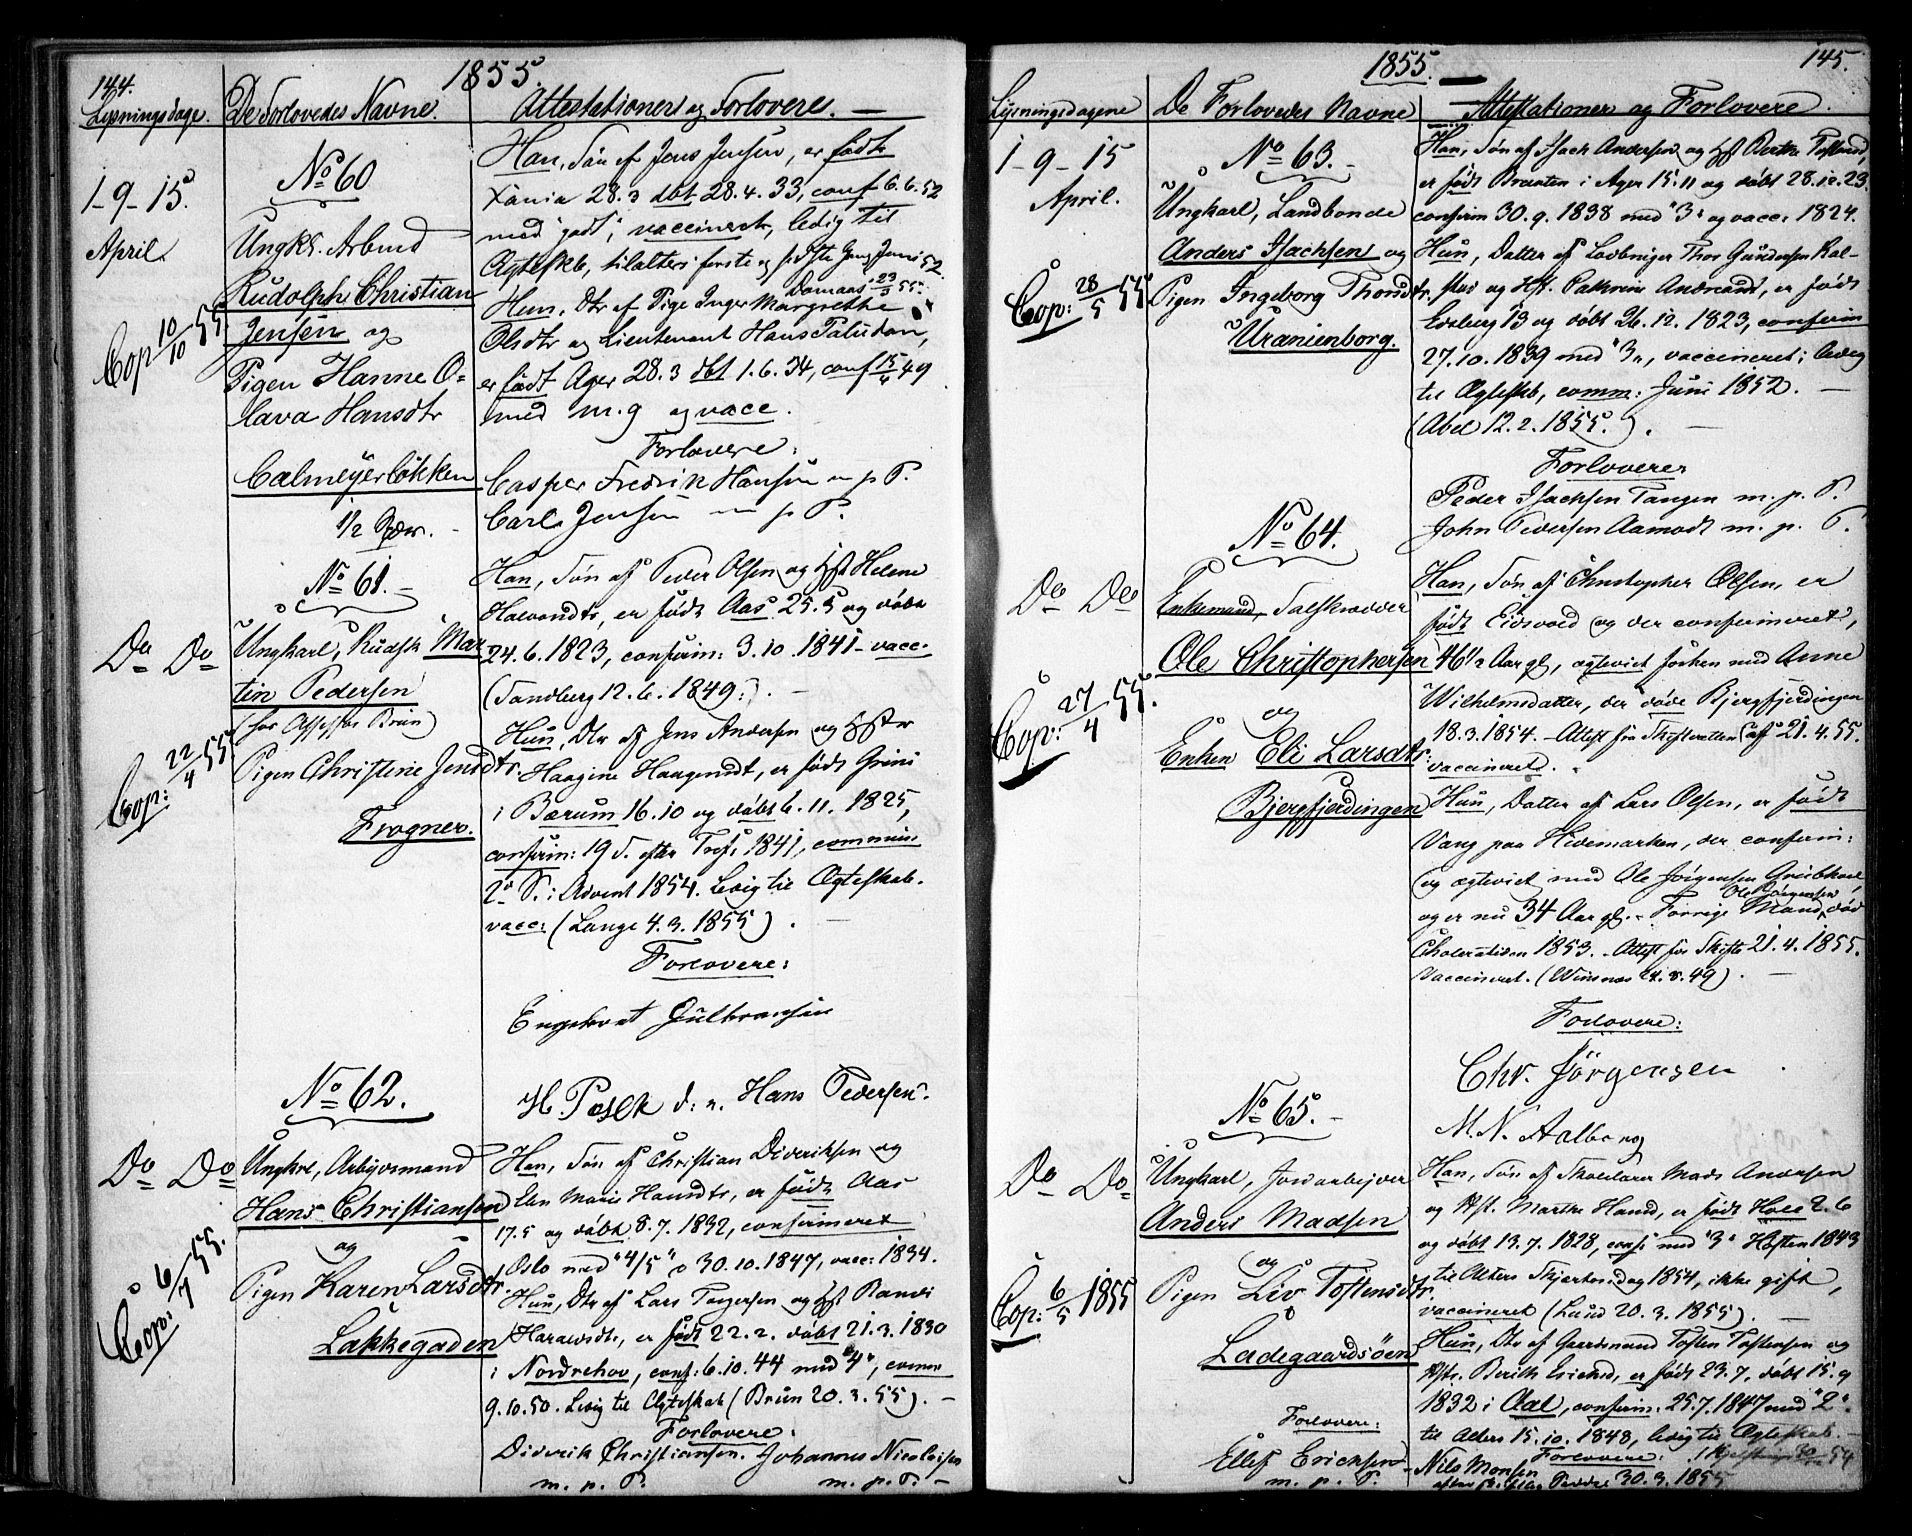 144.
1855.
Lysningsdage.
De Forlovedes Navne.
Attestationer og Forlovere. —
1-9-15.
April.
Cop 10/10 55.
No 60
Ungkl. Arbmd
Rudolph Christian
Jensen og
Pigen Hanne O-
lava Hansdtr
Calmeyerløkken
1/2 Spdr. -
Han, Søn af Jens Jensen, er født
Xania 28.3 dbt 28.4.33, conf 6.6.52
med godt, vaccineret, ledig til
Ægteskb,
Hun, Dtr af Pige Inger Margrethe
Olsdtr og Lieutenant Hans Paludan,
er født Ager 28.3 dbt 1.6.34, conf 15/4 49
med m.g og vacc.
Forlovere:
Casper Fredrik Hansen m p P.
Carl Jensen m p P.
Do Do
Cop: 22/4 55
No 61. -
Ungkarl, Kudsk Mar-
tin Pedersen
(hos Assessor Brun)
Pigen Christine Jensdtr.
Frogner.
Han, Søn af Peder Olsen og Hst Helene
Halvorsdtr, er født Aas 25.5 og døbt
24.6.1823, confirm: 3.10.1841 - vacc.
(Sandberg 12.6.1849.) -
Hun, Dtr af Jens Andersen og Hstr
Haagine Haagensdt, er født Grini
i Bærum 16.10 og døbt 6.11.1825,
confirm: 19 S. efter Tref: 1841, commun
2 S. i Advent 1854. Ledig til Ægteskab.
vacc: (Lange 4.3.1855). -
Forlovere:
Engebret Gulbransen
H. Posek d: n. Hans Pedersen.
Do Do
Cop: 6/7 55.
No 62.
Ungkrl, Arbejdsmand
Hans Christiansen
og
Pigen Karen Larsdtr.
Lakkegaden
Han, Søn af Christian Dideriksen og
Elen Marie Hansdtr, er født Aas
17.5 og døbt 8.7.1832, confirmeret
Oslo med "4/5" d 30.10.1847, vacc: 1834.
Hun, Dtr af Lars Torgersen og Hst Randi
Haraldsdtr, er født 22.2. døbt 21.3.1830
i Nordrehov, conf: 6.10.44 med "4", comm
9.10.50. Ledig til Ægteskab (Brun 20.3.55). -
Forlovere.
Diderik Christiansen. Johannes Nicolaisen
m. p. P. m. p. P. -
145.
1855.
Lysningsdagene
De Forlovedes Navne
Attestationer og Forlovere.
1-9-15
April.
Cop: 28/5 55
No 63. -
Ungkarl, Landbonde
Anders Isachsen og
Pigen Ingeborg Thorsdtr.
Uranienborg.
Han, Søn af Isach Andersen og Hst Berthe
er født Brænten i Ager 15.11 og døbt 28.12.23.
confirm 30.9.1838 med "3" og vacc: 1824.
Hun, Datter af Løbniger Thor Gundersen Kal-
stad og Hst. Cathrine Andreasd, er født
Edsberg 13 og døbt 26.12.1823, confirm
27.10.1839 med "3", vaccineret; ledig
til Ægteskb, comm: Juni 1852. -
(Abel 12.2.1855.). -
Forlovere
Peder Isachsen Tangen m. p. P.
John Pedersen Aamodt m. p. P.
Do Do
Cop: 27/4 55.
No 64.
Enkemand, Salskrædder
Ole Christophersen
og
Enken Eli Larsdtr.
Bjergfjerdingen
Han, Søn af Christopher Olsen, er
født Eidsvold og der confirmeret,
46 1/2 Aar gl, ægteviet forhen med Anne
Wilhelmsdatter, der døde Bjergfjerdingen
18.3.1854. - Attest fra Skifteretten af 21.4.55.
vaccineret.
Hun, Datter af Lars Olsen, er født
Vang paa Hedemarken, der confirm:
og ægteviet med Ole Jørgensen
og er nu 34 Aar gl. - Forrige Mand Ole Jørgensen, død
Choleratiden 1853. - Attest fr Skifte 21.4.1855.
vaccineret. (Winsnes 24.8.49). -
Forlovere:
Chr. Jörgensen
M. N. Aalborg
Do Do
Cop: 6/5 1855
No 65. -
Ungkarl, Jordarbejder
Anders Madsen
og
Pigen Liv Tostensdtr.
Ladegaardsöen
Forlovere:
Ellef Ericksen
m. p. P.
Han, Søn af Skolelærer Mads Andersen
og Hst. Marthe Hansd, er født Hole 2.6
og døbt 13.7.1828, conf: med "3" Høsten 1843
til Alters Skjærtorsdag 1854, ikke gift,
vaccineret (Lund 20.3.1855). -
Hun, Dtr af Gaardmand Tosten Tostensen og
Hst. Berith Ericksd, er født 23.7, døbt 15.9
1832 i Aal, confirm: 25.7.1847 med "2".
til Alters 15.10.1848, ledig til Ægteskab. -
Forlovere:
Nils Monsen
30.3.1855